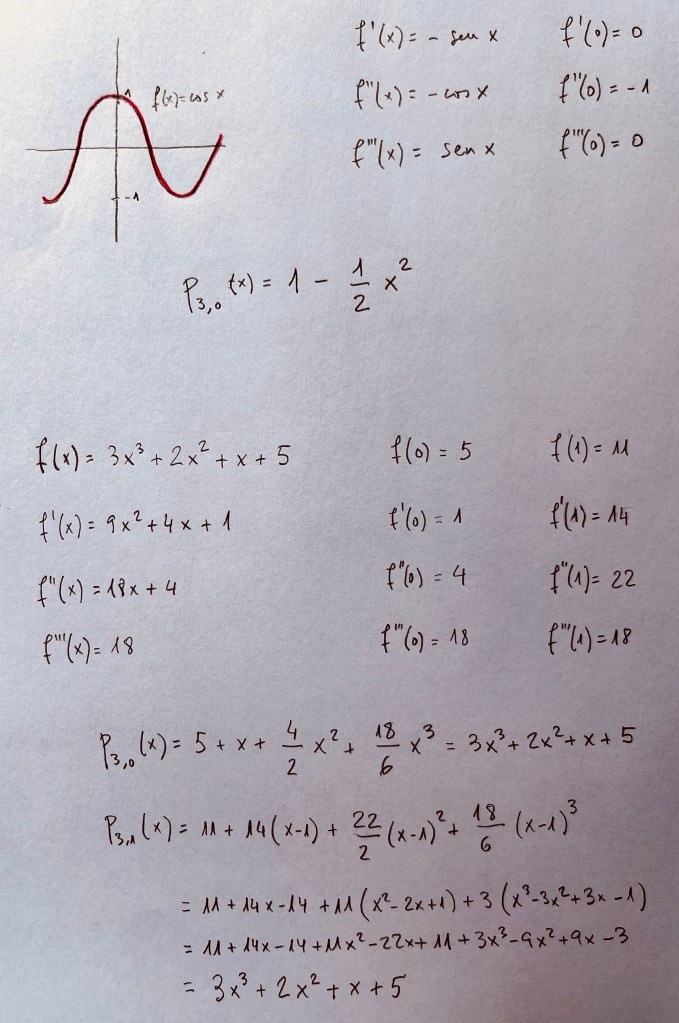 f'(x) = - sen x f'(0) = 0
1 f(x) = cos x
f''(x) = - cos x f''(0) = -1
f'''(x) = sen x f'''(0) = 0
-1
P₃,₀(x) = 1 - 1/2 x²
f(x) = 3x³ + 2x² + x + 5 f(0) = 5 f(1) = 11
f'(x) = 9x² + 4x + 1 f'(0) = 1 f'(1) = 14
f''(x) = 18x + 4 f''(0) = 4 f''(1) = 22
f'''(x) = 18 f'''(0) = 18 f'''(1) = 18
P₃,₀(x) = 5 + x + 4/2 x² + 18/6 x³ = 3x³ + 2x² + x + 5
P₃,₁(x) = 11 + 14(x-1) + 22/2 (x-1)² + 18/6 (x-1)³
= 11 + 14x - 14 + 11(x² - 2x + 1) + 3(x³ - 3x² + 3x - 1)
= 11 + 14x - 14 + 11x² - 22x + 11 + 3x³ - 9x² + 9x - 3
= 3x³ + 2x² + x + 5